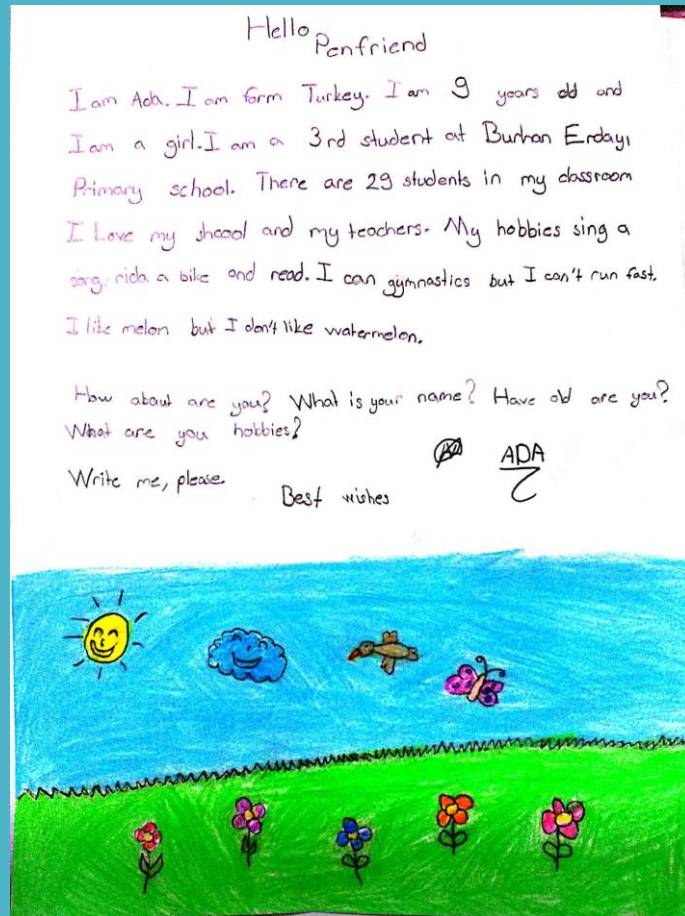 Hello Penfriend
I am Ada. I am form Turkey. I am 9 years old and
I am a girl. I am a 3rd student at Burhan Erdayı
Primary school. There are 29 students in my classroom
I Love my shcool and my teachers. My hobbies sing a
song, ride a bike and read. I can gymnastics but I can't run fast.
I like melon but I don't like watermelon.
How about are you? What is your name? Have old are you?
What are you hobbies?
Write me, please.
Best wishes
ADA